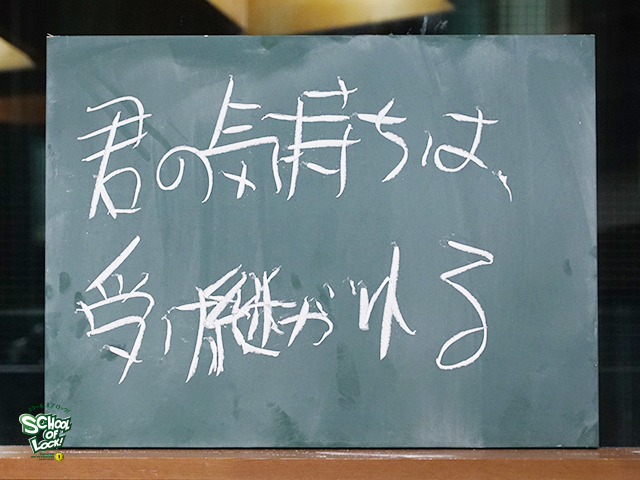 君の気持ちは、
受け継がれる
SCHOOL
OF
LOCK!